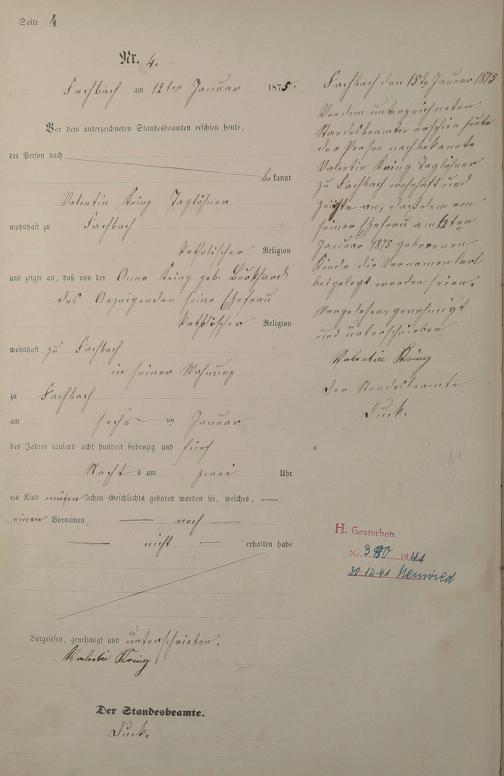 Seite 4
Nr. 4.
Fachbach am 12ten Januar 1875.
Vor dem unterzeichneten Standesbeamten erschien heute,
der Person nach
bekannt
Valentin Kring Taglöhner
wohnhaft zu Fachbach
katholischer Religion
und zeigte an, daß von der Anna Kring geb. Burkhard
des Anzeigenden seine Ehefrau
katholischer Religion
wohnhaft zu Fachbach
in seiner Wohnung
zu Fachbach
am sechsten Januar
des Jahres tausend acht hundert siebenzig und fünf
Nachts um zwei Uhr
ein Kind männlichen Geschlechts geboren worden sei, welches
einen Vornamen noch
nicht erhalten habe
Vorgelesen, genehmigt und unterschrieben.
Valentin Kring
Der Standesbeamte.
Duck.
Fachbach den 15te Januar 1875
Vor dem unterzeichneten
Standesbeamten erschien heute
der Person nach bekannte
Valentin Kring Taglöhner
zu Fachbach wohnhaft und
zeigte an, daß dem von
seiner Ehefrau am
Januar 1875 geborenen
Kinde die Vornamen Carl
beigelegt worden seien.
Vorgelesen, genehmigt
und unterschrieben
Valentin Kring
Der Standesbeamte
Duck.
H. Gestorben
Nr. 1941
30.12.41 Neuwied